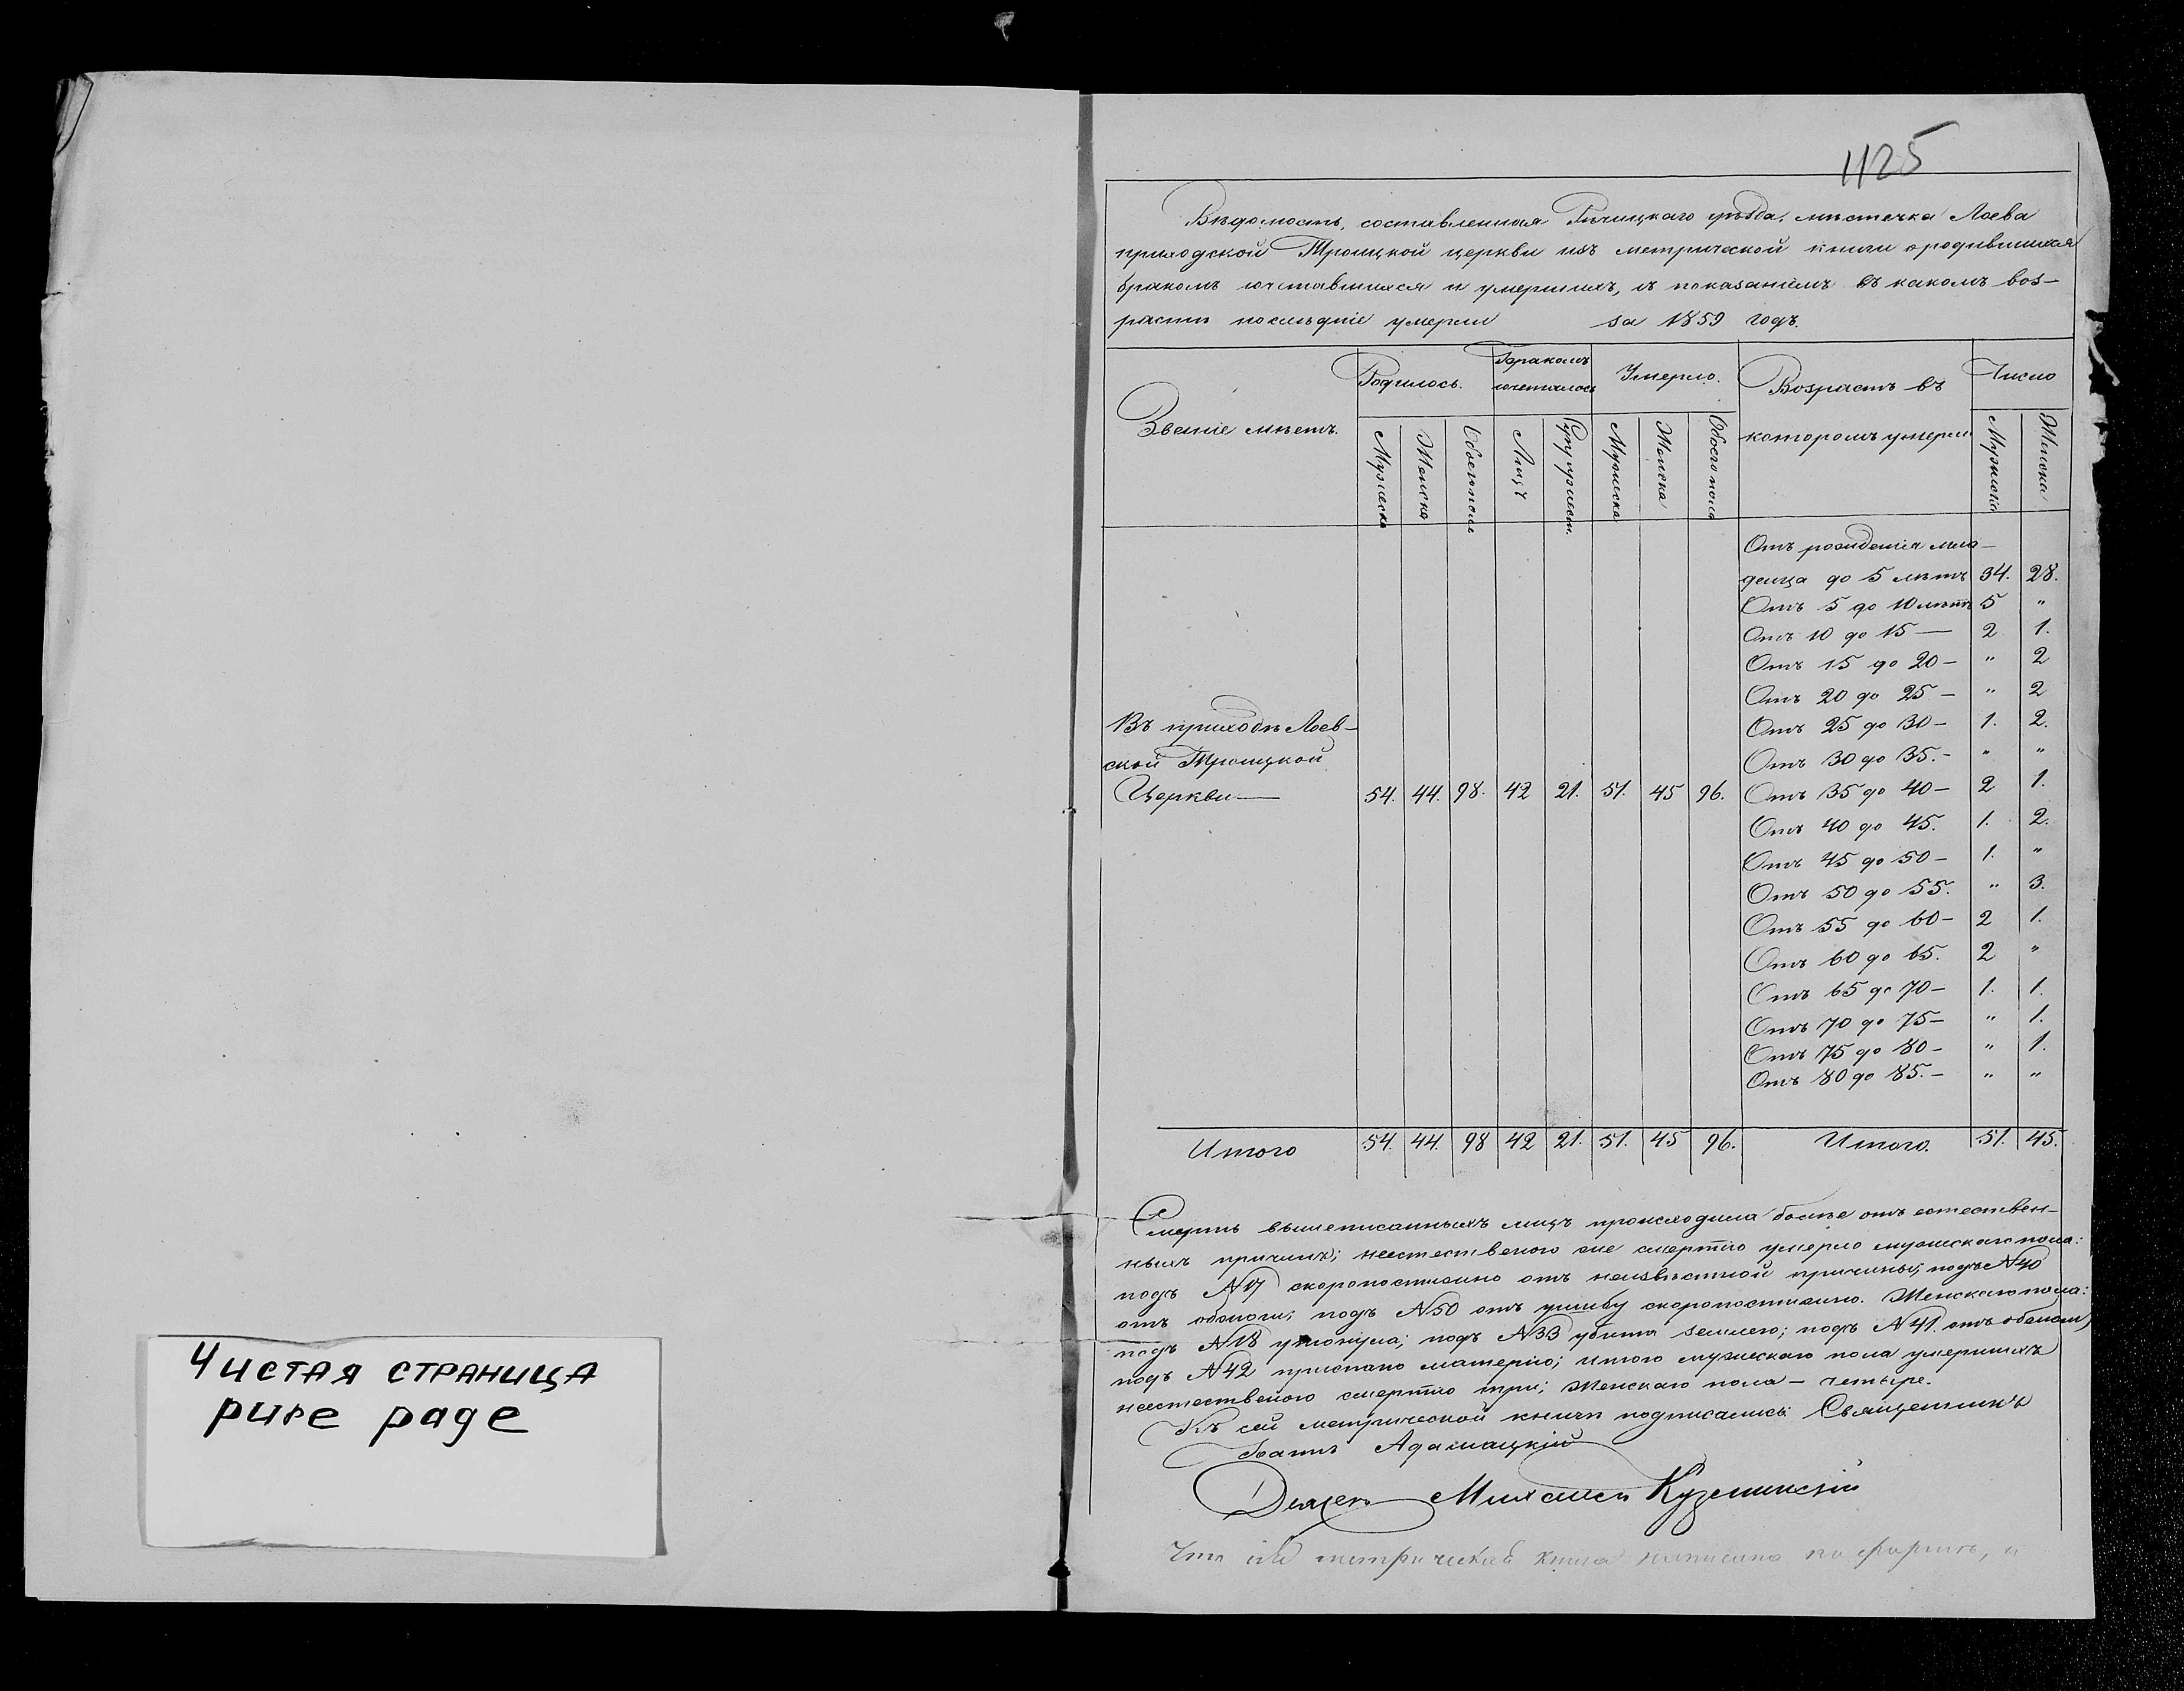 Чистая страница
pure page
1125
Вѣдомость, составленная Рѣчицкаго уѣзда, мѣстечка Лоева
приходской Троицкой церкви изъ метрической книги о родившихся
бракомъ сочетавшихся и умершихъ, съ показаніемъ въ какомъ воз-
растѣ послѣдніе умерли за 1859 годъ.
Званіе мѣстъ. Родилось. Бракомъ сочеталось Умерло. Возрастъ въ которомъ умерли Число
Мужеска Женска Обоего пола Лицъ Супружест. Мужеска Женска Обоего пола Мужеска Женска
Отъ рожденія мла-
денца до 5 лѣтъ 34. 28.
Отъ 5 до 10 лѣтъ 5 "
Отъ 10 до 15 — 2. 1.
Отъ 15 до 20 - " 2
Отъ 20 до 25 - " 2
Въ приходѣ Лоев- Отъ 25 до 30 - 1. 2.
ской Троицкой Отъ 30 до 35. - " "
Церкви — 54. 44. 98. 42 21. 51. 45 96. Отъ 35 до 40 - 2 1.
Отъ 40 до 45. 1. 2.
Отъ 45 до 50 - 1. "
Отъ 50 до 55. " 3.
Отъ 55 до 60 - 2 1.
Отъ 60 до 65. 2 "
Отъ 65 до 70 - 1. 1.
Отъ 70 до 75 - " 1.
Отъ 75 до 80 - " 1.
Отъ 80 до 85. - " "
Итого 54. 44. 98 42 21. 51. 45 96. Итого. 51. 45.
Смерть вышеписанныхъ лицъ происходила болѣе отъ естествен-
ныхъ причинъ; неестественою же смертію умерло мужескаго пола:
подъ N17 скоропостижно отъ неизвѣстной причины; подъ N40
отъ обжоги; подъ N50 отъ ушибу скоропостижно. Женскаго пола:
подъ N18 утонула; подъ N33 убита землею; подъ N41. отъ обжоги;
подъ N42 приспано матерію; итого мужескаго пола умершихъ
неестественою смертію три; Женскаго пола — четыре.
Къ сей метрической книгѣ подписались: Священникъ
Іоаннъ Адамацкій
Дьячекъ Михаилъ Кузминскій
Что сія метрическая книга написана по формѣ, и